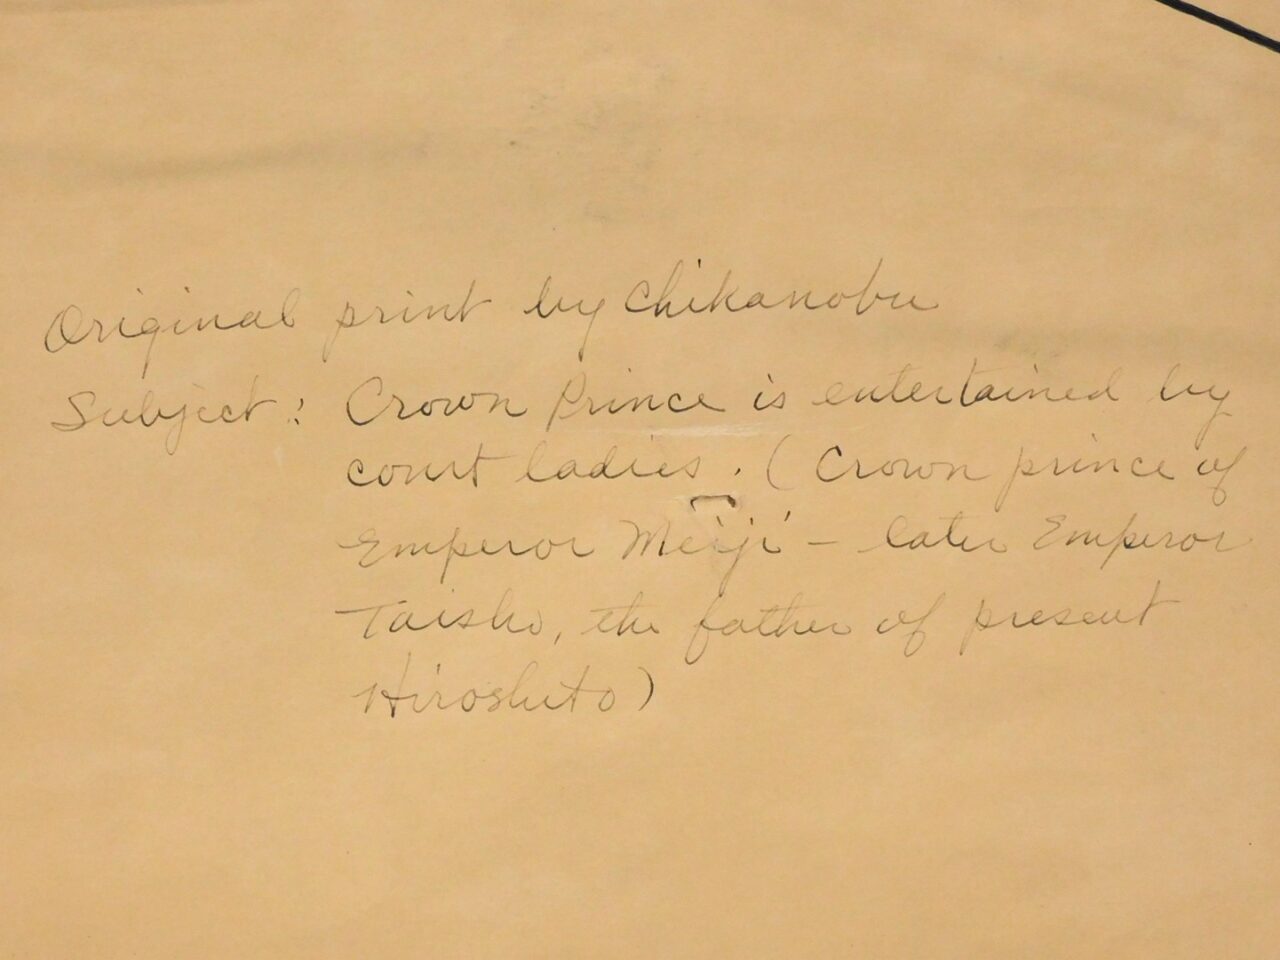 Original print by Chikanobu
Subject: Crown Prince is entertained by
court ladies. (Crown prince of
Emperor Meiji – later Emperor
Taisho, the father of present
Hiroshito)